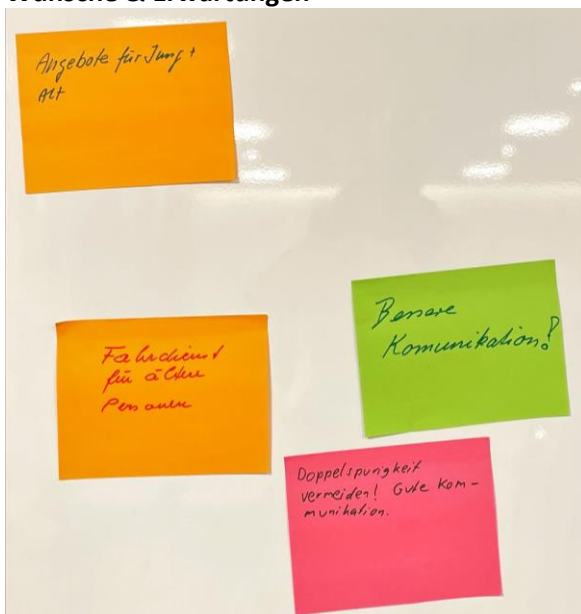 Wünsche & Erwartungen
Angebote für Jung +
Alt
Fahrdienst
für ältere
Personen
Bessere
Komunikation!
Doppelspurigkeit
vermeiden! Gute Kom-
munikation.